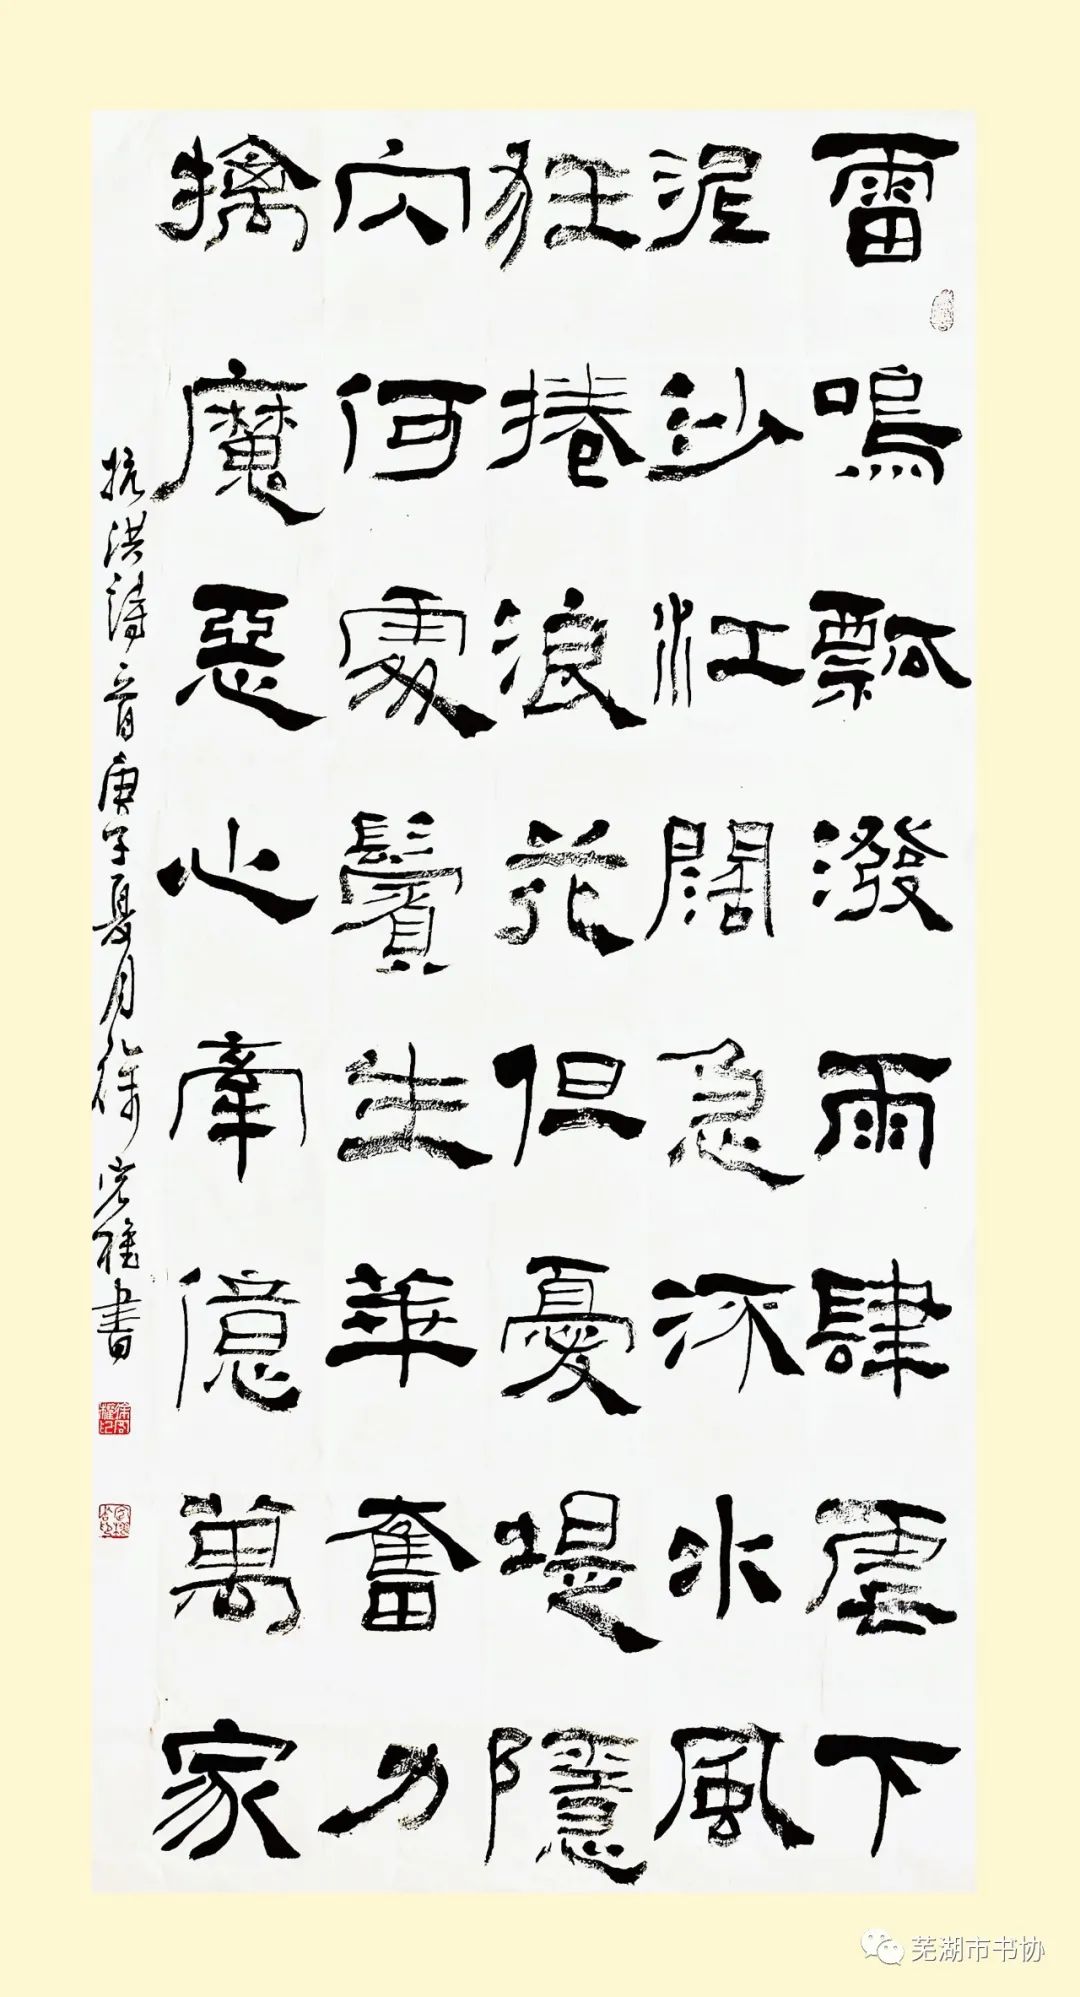 雷鳴飄潑雨肆雲下
泥沙江闊急流水風
狂捲浪花但憂堤隱
穴何處鬢生華奮力
擒魔惡心牽億萬家
抗洪詩一首庚子夏月徐宏權書
芜湖市书协